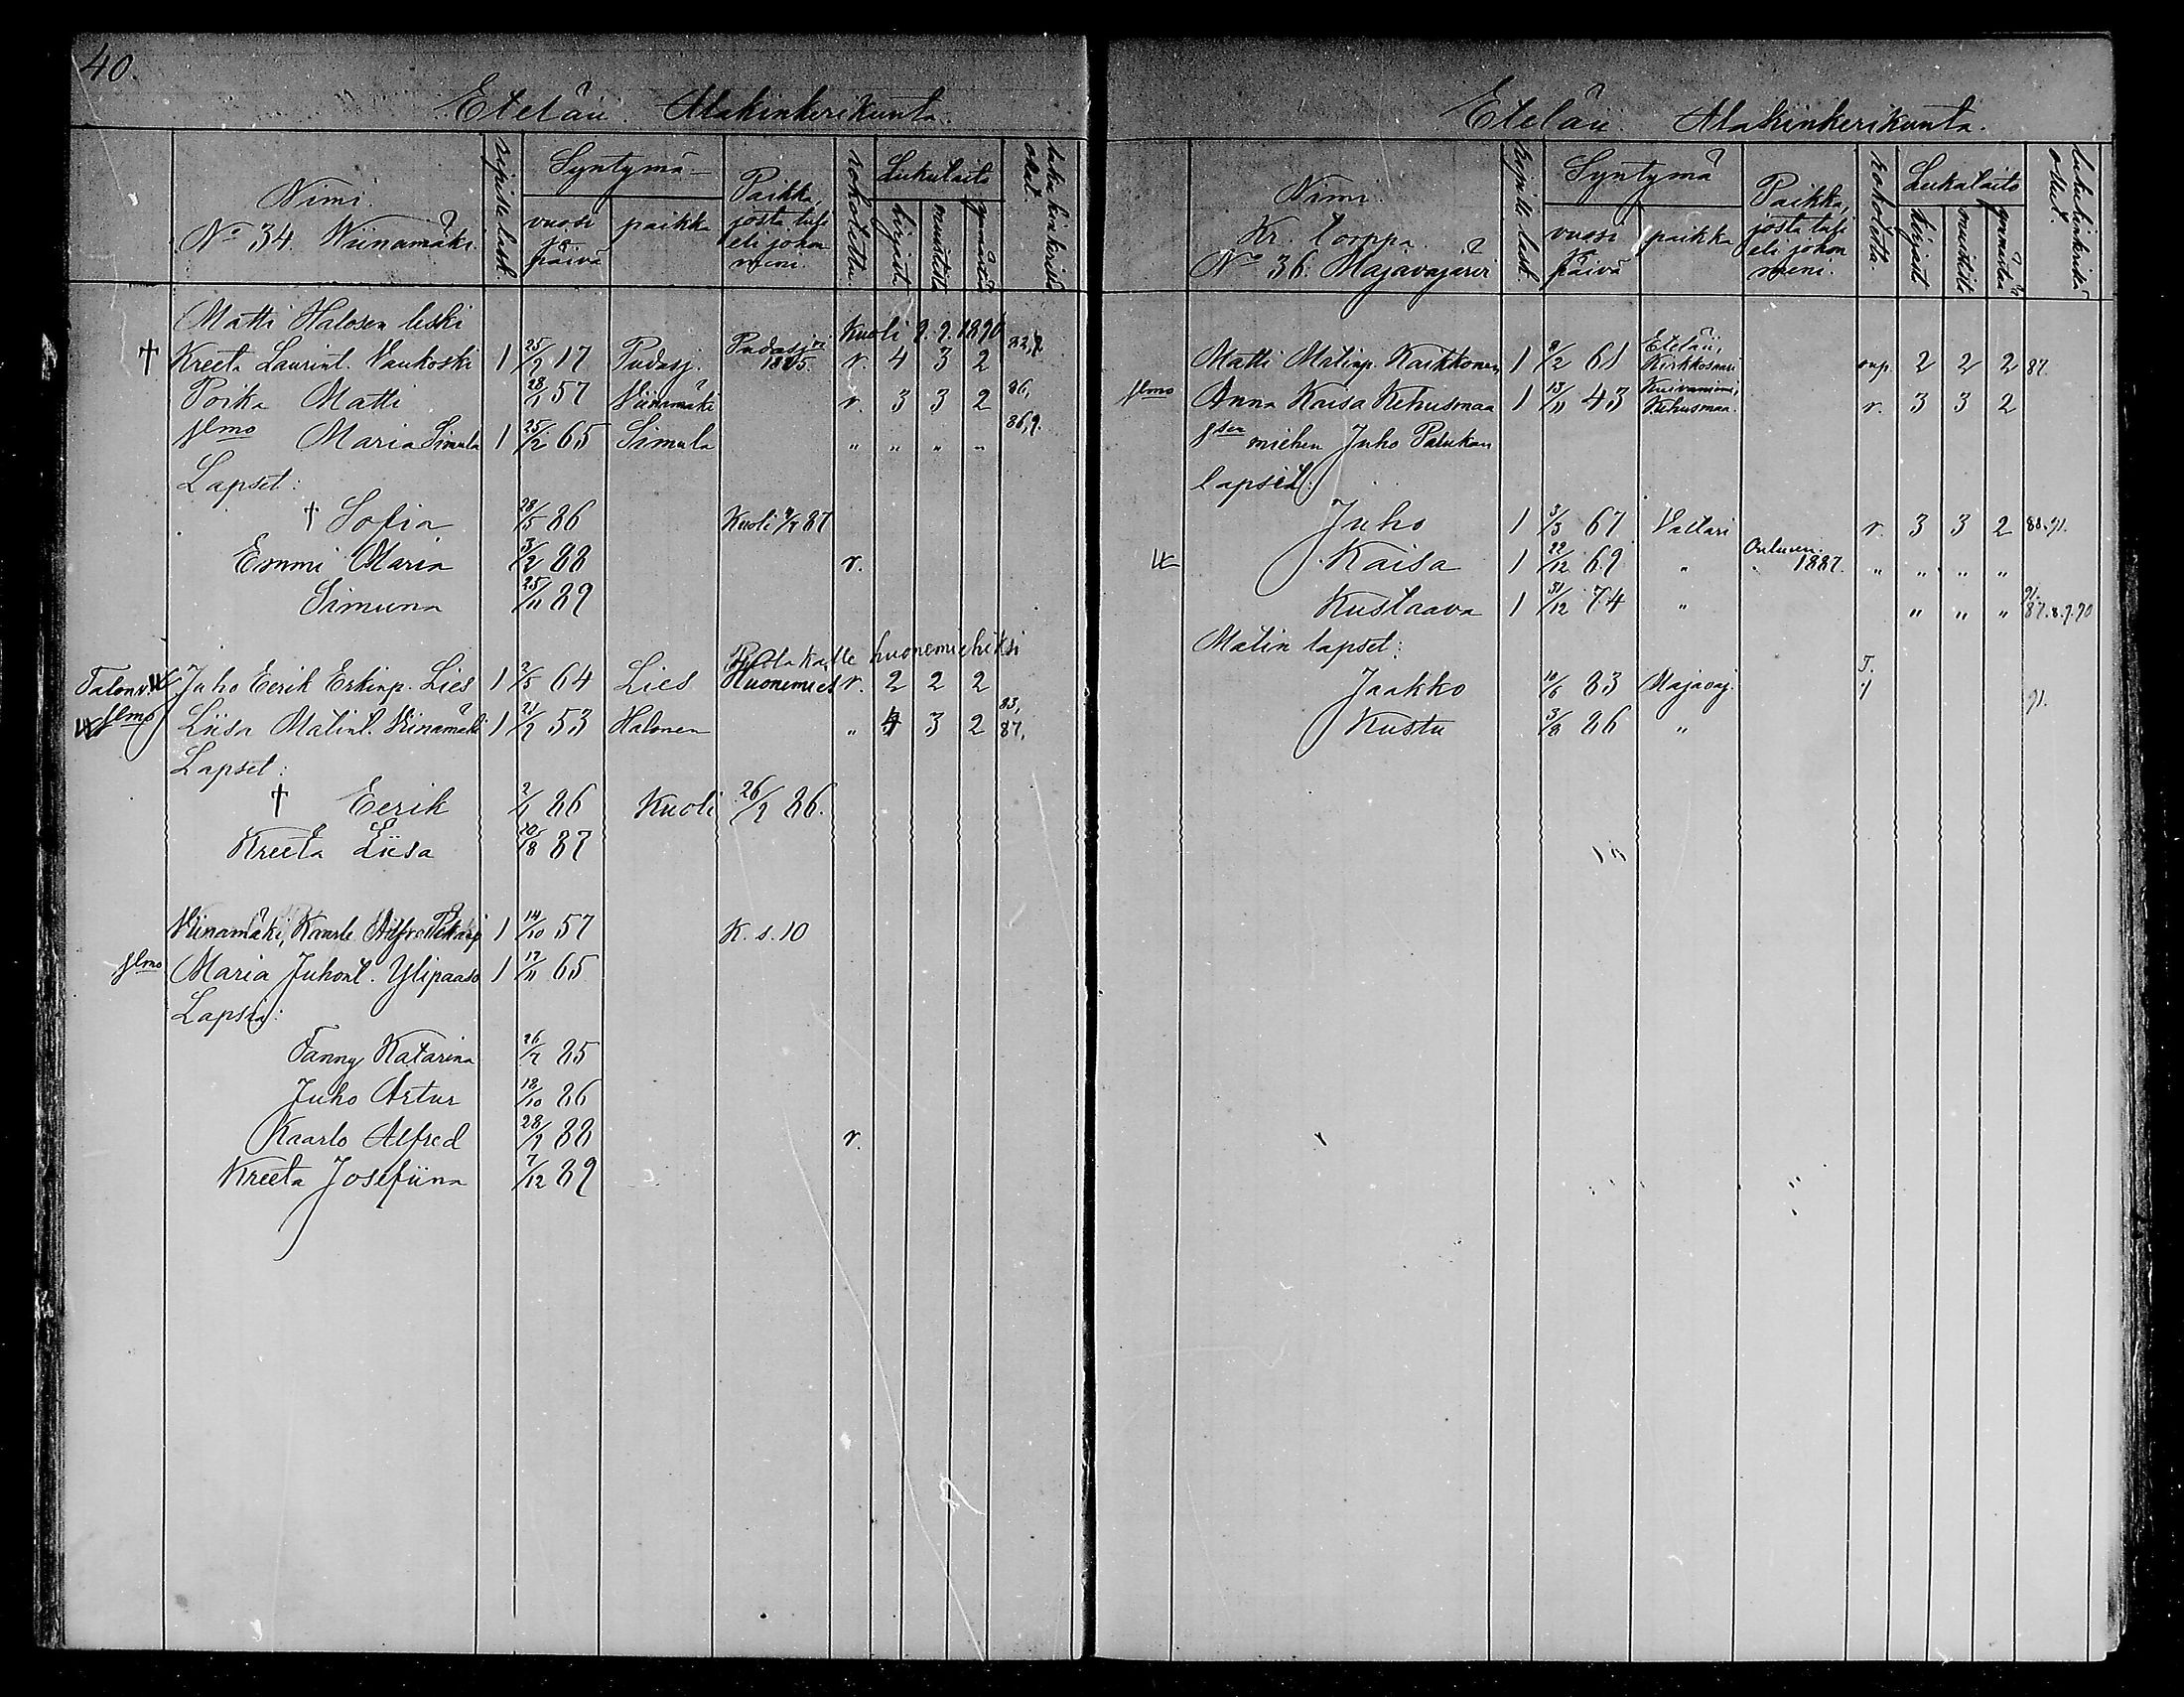 40.
Eteläii. Alakinkerikunta.
Nimi.
No 34. Wiinamäki.
ripille lask.
Syntymä-
vuosi ja päivä
paikka
Paikka, josta tuli eli johon meni.
rokotettu.
Lukutaito
kirjasta
muistista
ymmärtä
lukukinkerissä ollut.
Matti Halosen leski Kuoli 9.9.1890
† Kreeta Laurint. Vaukoski 1 25/2 17 Pudasj. Pudasjvi 1825. r. 4 3 2 82,9
Poika Matti 28/1 57 Viinamäki r. 3 3 2 86,
jlmo Maria Simula 1 25/2 65 Simula " " " " 86,9.
Lapset:
† Sofia 28/5 86 Kuoli 4/7 87
Emmi Maria 3/2 88 r.
Simuna 25/11 89
huonemiehiksi
Talonv. Juho Eerik Erkinp. Lies 1 2/5 64 Lies Huonemies r. 2 2 2
jlmo Liisa Matint. Viinamäki 1 21/9 53 Halonen " 4 3 2 83, 87,
Lapset:
† Eerik 2/1 86 Kuoli 26/9 86.
Kreeta Liisa 10/8 87
Viinamäki, Kaarle 1 14/10 57 K. s. 10
jlmo Maria Juhont. Ylipaaso 1 17/11 65
Lapsia:
Fanny Katarina 26/7 85
Juho Artur 18/10 86
Kaarlo Alfred 28/9 88 r.
Kreeta Josefiina 7/12 89
Eteläii. Alakinkerikunta.
Nimi.
Kr. torppa.
No 36. Majavajärvi
ripille lask.
Syntymä
vuosi päivä
paikka
Paikka, josta tuli eli johon meni.
rokotettu.
Lukutaito
kirjast
muistist
ymmärtä
lukukinkeriss ollut.
Matti Matinp. Karkkonen 1 9/2 61 Eteläii, Kirkkosaari rup. 2 2 2 87.
jlmo Anna Kaisa Kehusmaa 1 13/11 43 Kuivaniemi, Kehusmaa. r. 3 3 2
jsen miehen Juho Palukan
lapset:
Juho 1 3/3 67 Valtari r. 3 3 2 88.91.
Kaisa 1 22/12 69 " Ouluun. 1887. " " " "
Kustaava 1 31/12 74 " " " " 91. 87.8.9.90
Matin lapset:
Jaakko 10/6 83 Majavaj. T. 1 91.
Kustu 3/8 86 "